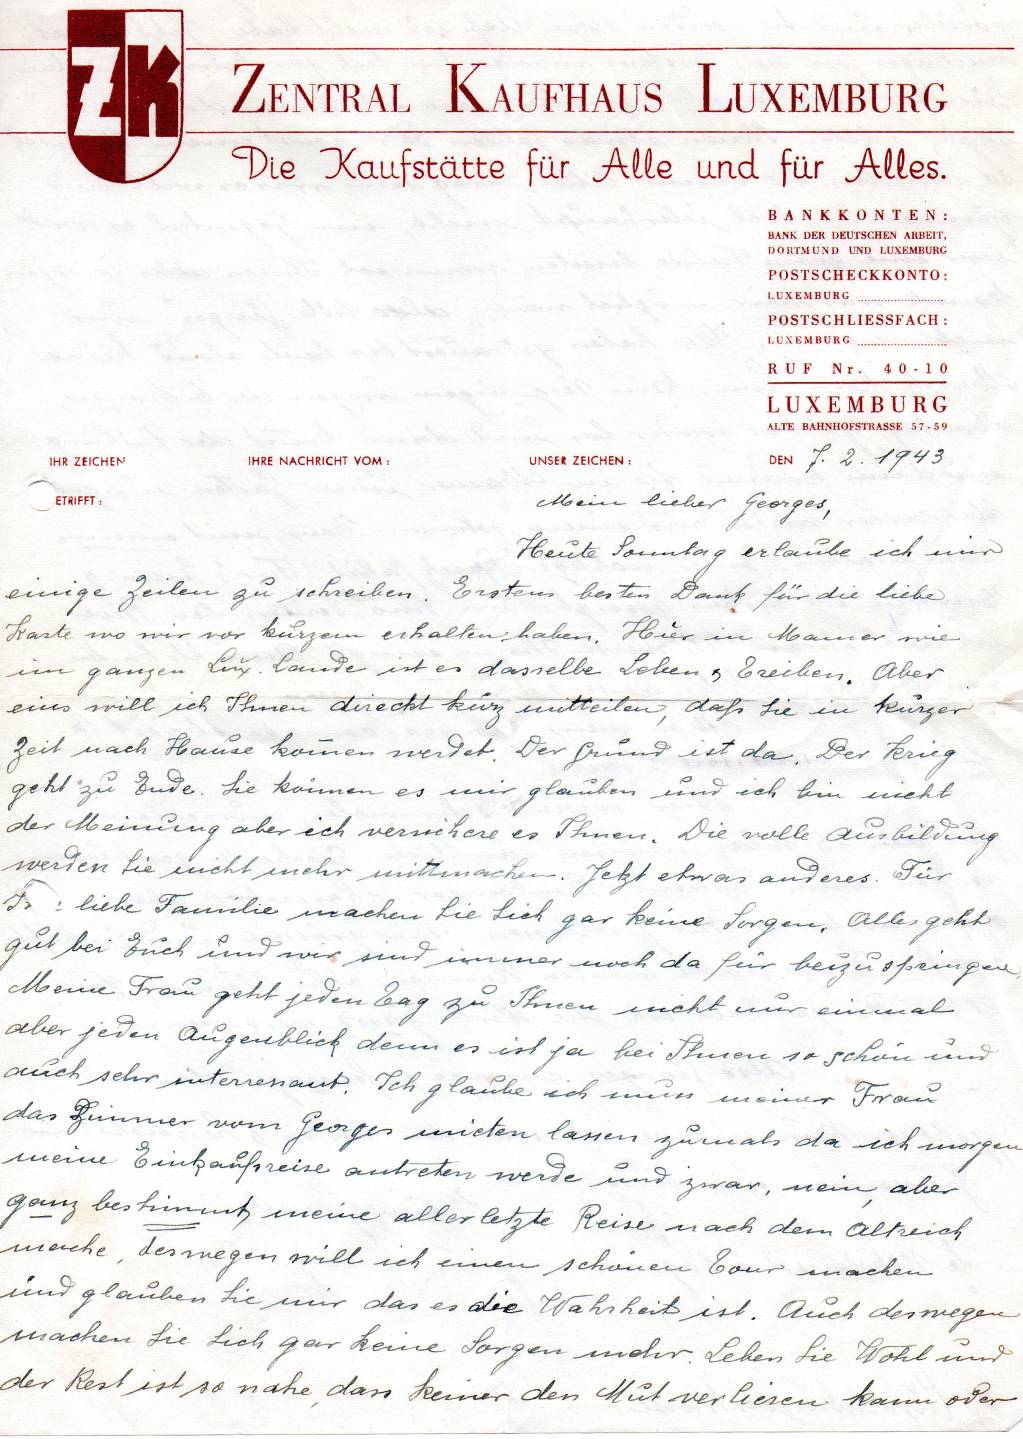 ZK
ZENTRAL KAUFHAUS LUXEMBURG
Die Kaufstätte für Alle und für Alles.
BANKKONTEN:
BANK DER DEUTSCHEN ARBEIT,
DORTMUND UND LUXEMBURG
POSTSCHECKKONTO:
LUXEMBURG
POSTSCHLIESSFACH:
LUXEMBURG
RUF Nr. 40-10
LUXEMBURG
ALTE BAHNHOFSTRASSE 57-59
IHR ZEICHEN IHRE NACHRICHT VOM: UNSER ZEICHEN: DEN 7. 2. 1943
ETRIFFT:
Mein lieber Georges,
Heute Sonntag erlaube ich mir
einige Zeilen zu schreiben. Erstens besten Dank für die liebe
Karte wo wir vor kurzem erhalten haben. Hier in Mamer wie
im ganzen Lux. Lande ist es dasselbe Leben & Treiben. Aber
eins will ich Ihnen direckt kurz mitteilen, daß Sie in kurzer
Zeit nach Hause kom̄en werdet. Der Grund ist da. Der Krieg
geht zu Ende. Sie können es mir glauben und ich bin nicht
der Meinung aber ich versichere es Ihnen. Die volle Ausbildung
werden Sie nicht mehr mittmachen. Jetzt etwas anderes. Für
liebe Familie machen Sie Sich gar keine Sorgen. Alles geht
gut bei Euch und wir sind immer noch da für beizuspringen.
Meine Frau geht jeden Tag zu Ihnen nicht nur einmal
aber jeden Augenblick denn es ist ja bei Ihnen so schön und
auch sehr interressant. Ich glaube ich muss meiner Frau
das Zimmer vom Georges mieten lassen zumals da ich morgen
meine Einkaufsreise antreten werde und zwar, nein, aber
ganz bestimmt, meine allerletzte Reise nach dem Altreich
mache, deswegen will ich einen schönen Tour machen
und glauben Sie mir das es die Wahrheit ist. Auch deswegen
machen Sie Sich gar keine Sorgen mehr. Leben Sie Wohl und
der Rest ist so nahe, dass keiner den Mut verlieren kann oder